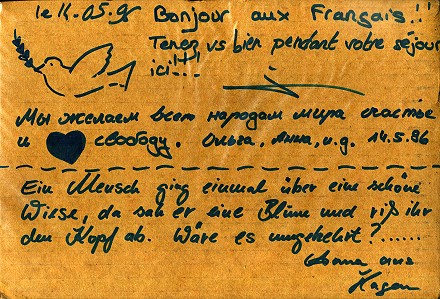 le 14.05.96 Bonjour aux Français!!
Tenez vs bien pendant votre séjour
ici!!!
Мы желаем всем народам мира счастье
и свободу. Ольга, Анна, и.д. 14.5.96
Ein Mensch ging einmal über eine schöne
Wiese, da sah er eine Blume und riß ihr
den Kopf ab. Wäre es umgekehrt?......
Anna aus
Hagen